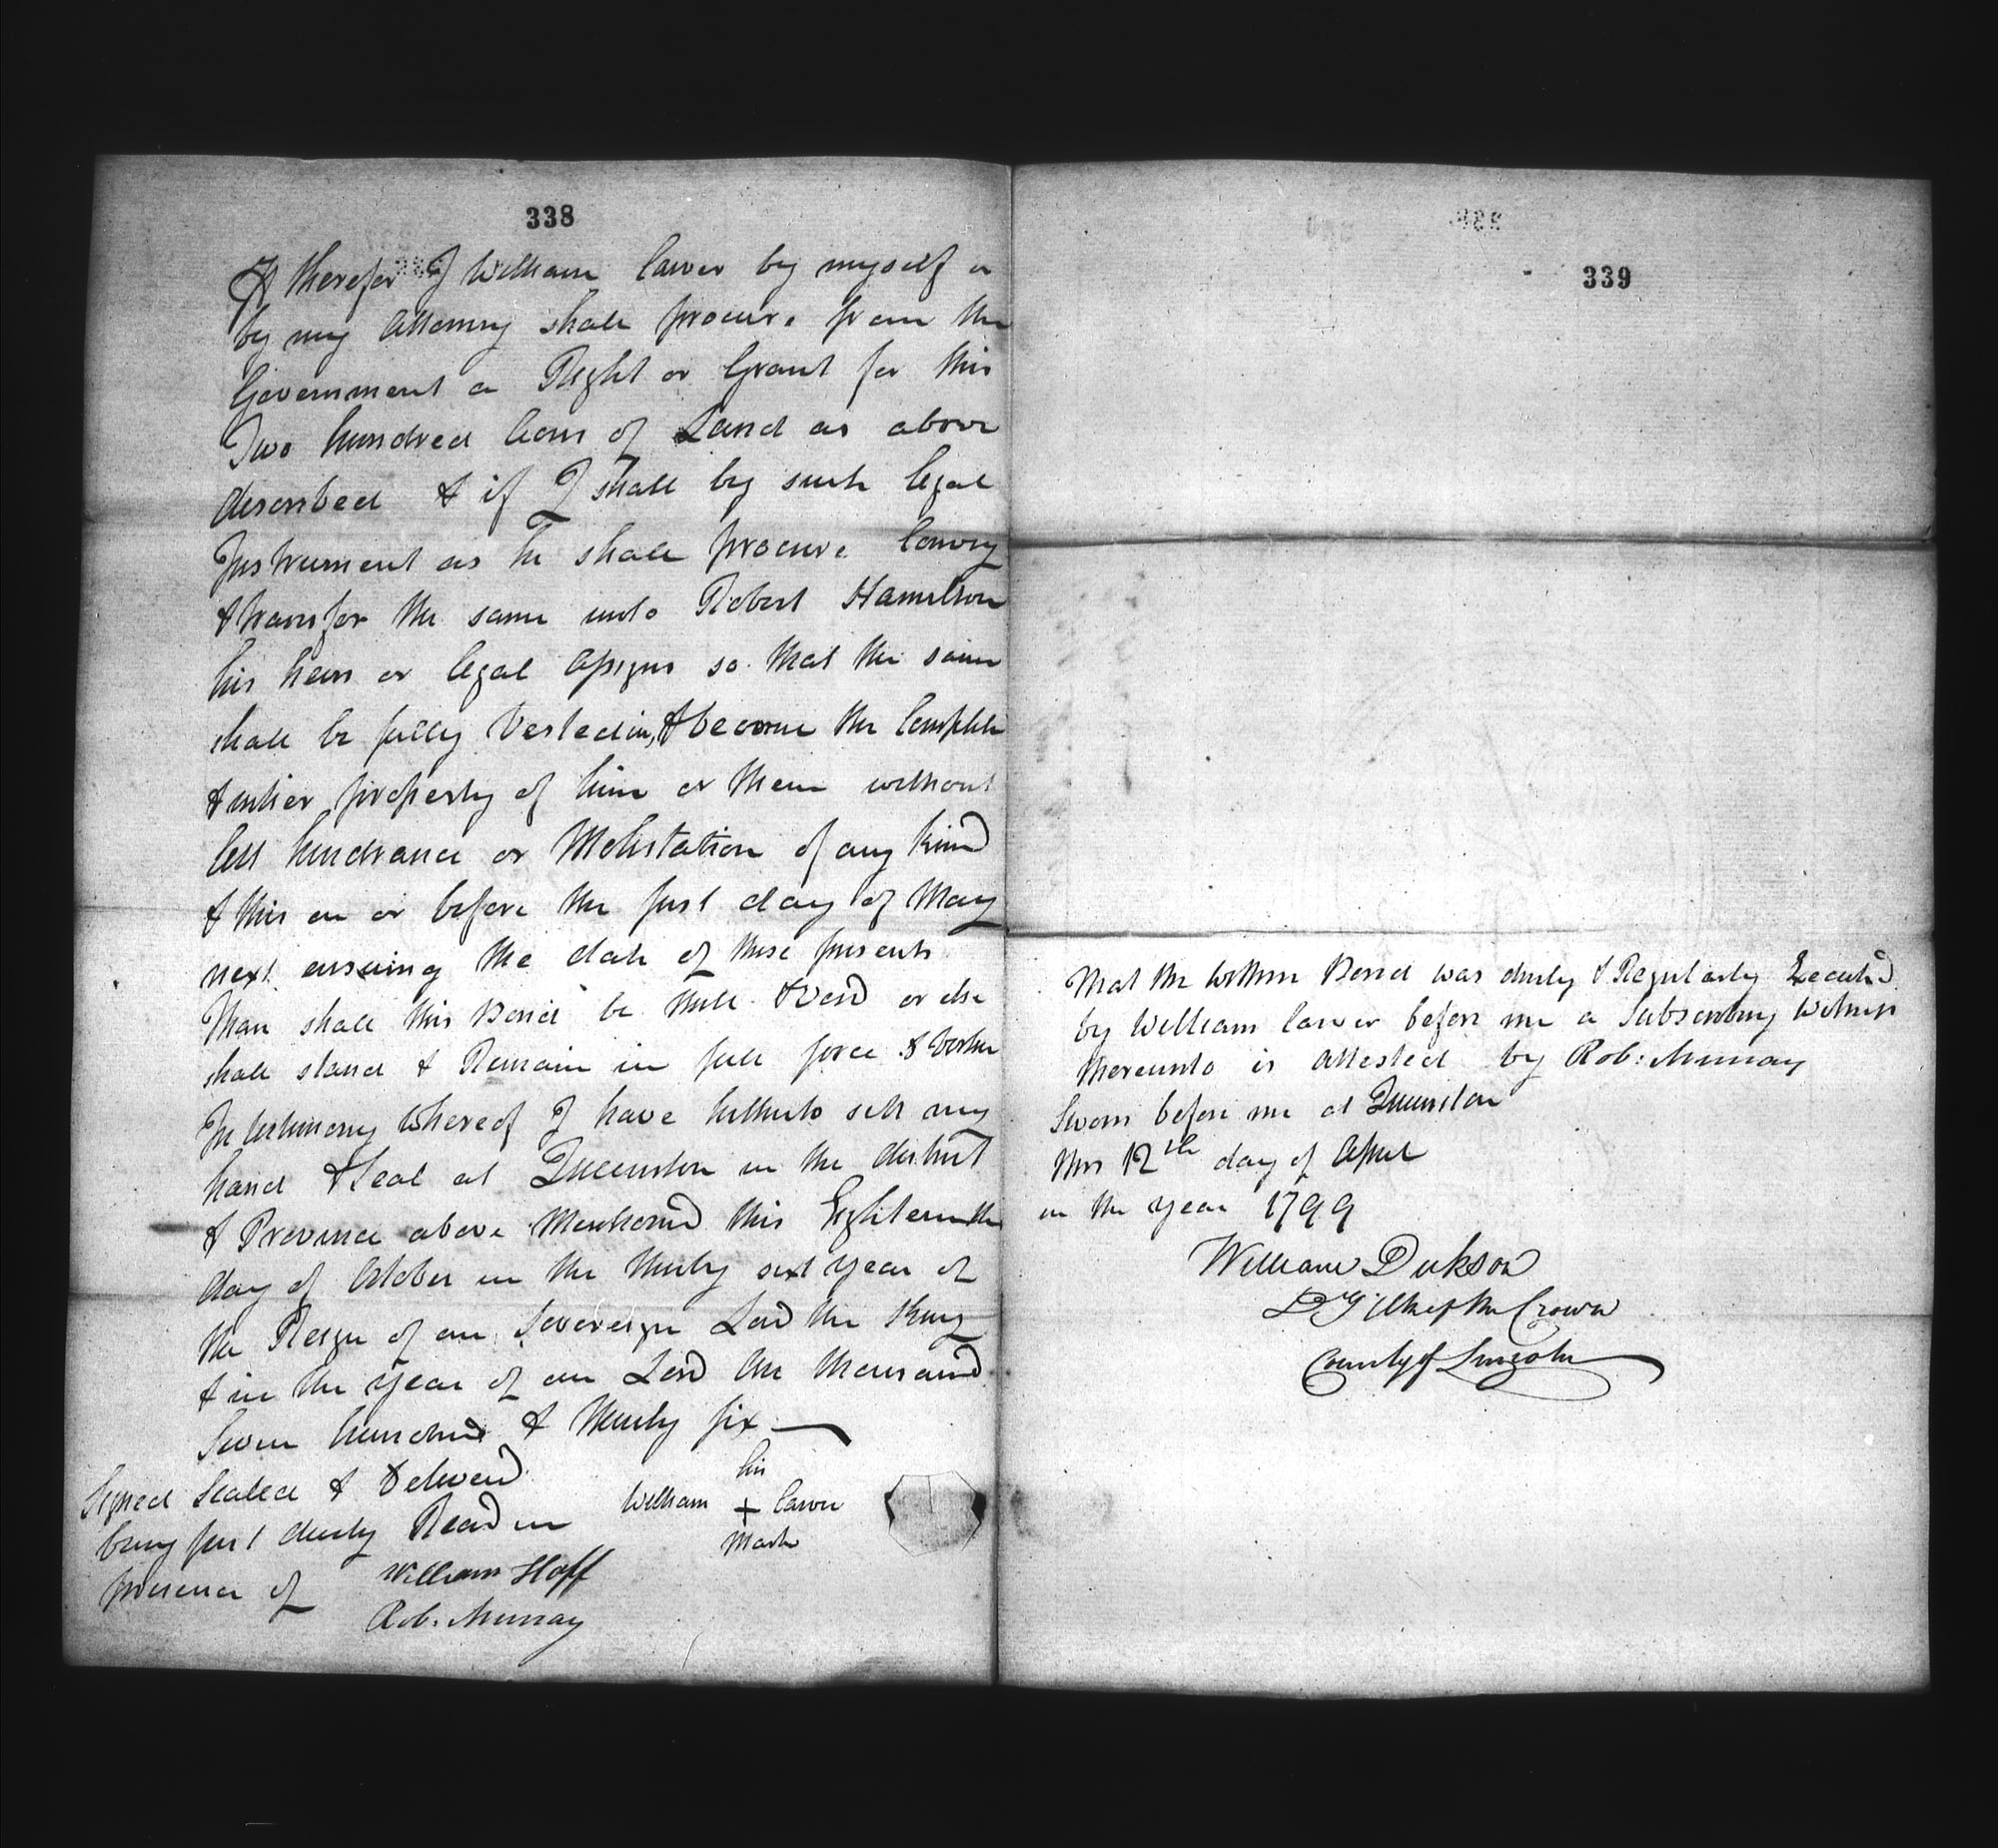 338
If therefor I William Carver by myself or
by my Attorney shall procure from the
Government a Right or Grant for this
Two hundred Acres of Land as above
described & if I shall by such legal
Instrument as he shall procure Convey
& transfer the same unto Robert Hamilton
his heirs or legal Assigns so that the same
shall be fully Vested in, & become the Complete
& entier property of him or them without
lett hindrance or Molestation of any kind
& this on or before the first day of May
next ensuing the date of these presents
Than shall this Bond be Null & Void or else
shall stand & Remain in full force & Vertue
In testimony Whereof I have hitherto sett my
hand & Seal at Queenston in the district
& Province above Mentioned this Eighteenth
day of October in the thirty sixt year of
the Reign of our Sovereign Lord the King
& in the year of our Lord One thousand
Seven hundred & Ninty six
Signed Sealed & Delivered
being first duely Read in
presence of
William Hoff
Rob: Murray
his
William + Carver
Mark
339
That the Within Bond was duely & Regularly Executed
by William Carver before me a Subscribing Witness
thereunto is attested by Rob: Murray
Sworn before me at Queenston
this 12th day of April
in the year 1799
William Dickson
Dy Clk of the Crown
County of Lincoln